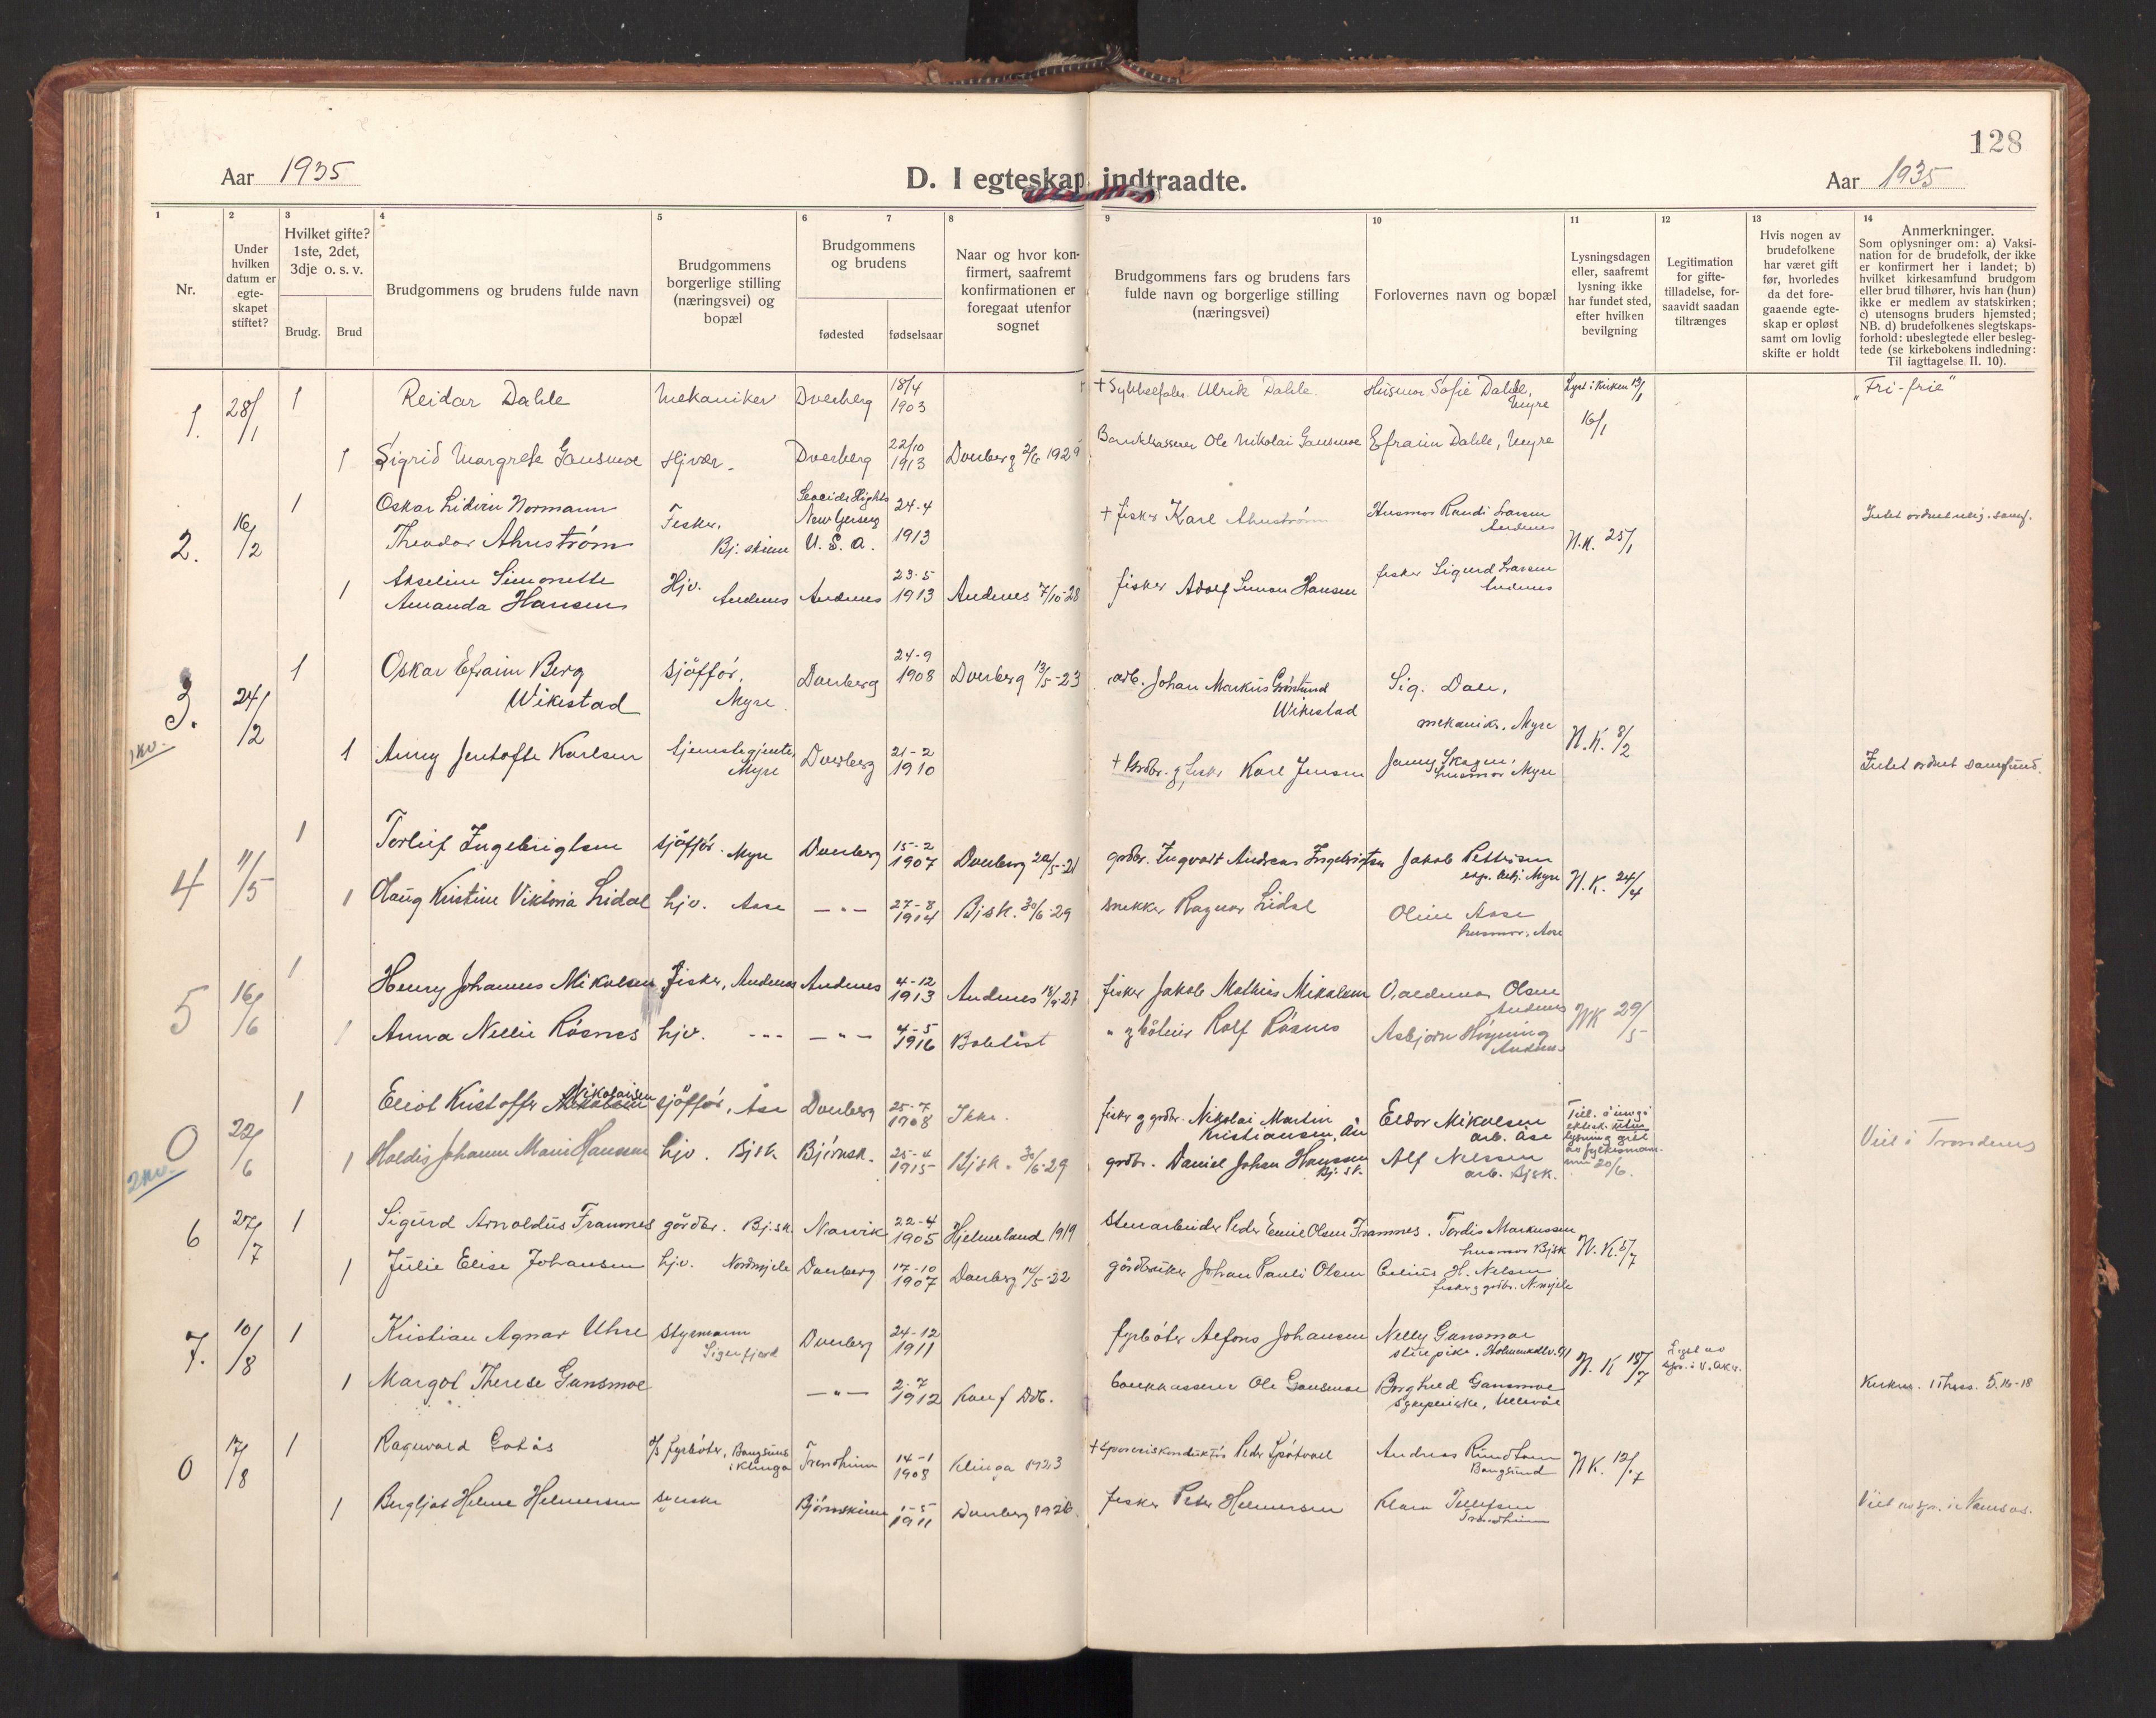 128
Aar 1935
D. I egteskap indtraadte.
Aar 1935
1
2
3
4
5
6
7
8
9
10
11
12
13
14
Nr.
Under
hvilken
datum er
egte-
skapet
stiftet?
Hvilket gifte?
1ste, 2det,
3dje o. s. v.
Brudg.
Brud
Brudgommens og brudens fulde navn
Brudgommens
borgerlige stilling
(næringsvei) og
bopæl
Brudgommens
og brudens
fødested
fødselsaar
Naar og hvor kon-
firmert, saafremt
konfirmationen er
foregaat utenfor
sognet
Brudgommens fars og brudens fars
fulde navn og borgerlige stilling
(næringsvei)
Forlovernes navn og bopæl
Lysningsdagen
eller, saafremt
lysning ikke
har fundet sted,
efter hvilken
bevilgning
Legitimation
for gifte-
tilladelse, for-
saavidt saadan
tiltrænges
Hvis nogen av
brudefolkene
har været gift
før, hvorledes
da det fore-
gaaende egte-
skap er opløst
samt om lovlig
skifte er holdt
Anmerkninger.
Som oplysninger om: a) Vaksi-
nation for de brudefolk, der ikke
er konfirmert her i landet; b)
hvilket kirkesamfund brudgom
eller brud tilhører, hvis han (hun)
ikke er medlem av statskirken;
c) utensogns bruders hjemsted;
NB. d) brudefolkenes slegtskaps-
forhold: ubeslegtede eller besleg-
tede (se kirkebokens indledning:
Til iagttagelse II. 10).
1. 28/1 1 Reidar Dahle Mekaniker Dverberg 18/4 1903 Ulrik Dahle Husmor Sofie Dahle, Myre Lyst i kirken 13/1 "Fri-frie"
16/1
1 Sigrid Margrete Gansmoe Hjvær. Dverberg 22/10 1913 Dverberg 2/6 1929 Bankkasserer Ole Nikolai Gansmoe Efraim Dahle, Myre
2. 16/2 1 Oskar Lidvin Normann
Theodor Ahnstrøm Fisker, Bj.skinn Seaside Hights New Gersey U.S.A. 24-4 1913 + fisker Karl Ahnstrøm Husmor Randi Larsen Andenes N.K. 25/1 Intet ordnet relig. samf.
1 Akseline Simonette
Amanda Hansen Hjv. Andenes Andenes 23-5 1913 Andenes 7/10-28 fisker Adolf Simon Hansen fisker Sigurd Larsen Andenes
3. 24/2 1 Oskar Efraim Berg
Wikestad sjåffør, Myre Dverberg 24-9 1908 Dverberg 13/5-23 arb. Johan Markus Wikestad Sig. Dale, mekanikr. Myre N.K. 8/2
1kv.
1 Anny Jentofte Karlsen tjenestegjente, Myre Dverberg 21-2 1910 + Grdbr. g fisker Karl Jensen Jenny Skogen, husmor Myre Intet ordnet samfund.
4 11/5 1 Torleif Ingebrigtsen sjåffør Myre Dverberg 15-2 1907 Dverberg -21 grdbr. Ingvart Andreas Ingebrigtsen Jakob Pettersen Myre N.K. 24/4
1 Olaug Kristine Viktoria Lidal hjv. Aase -"- 27-8 1914 Bjsk. 30/6-29 snekker Ragnar Lidal Oline Aase husmor, Aase
5 16/6 1 Henry Johannes Mikalsen fisker, Andenes Andenes 4-12 1913 Andenes 18/9-27 fisker Jakob Mathias Mikalsen Valdemar Olsen Andenes NK 29/5
1 Anna Nellie Røsnes hjv. -"- -"- 4-5 1916 " Rolf Røsnes Asbjørn Høyning Andenes
0 22/6 1 Eliot Kristoffer Nikolaisen sjåffør, Åse Dverberg 25-7 1908 Ikke. fisker g grdbr. Nikolai Martin Kristiansen, Eldor Mikalsen arb. Åse Till. å inngå ektesk. uten lysning gitt av fylkesmannen 20/6.
2kv.
1 Haldis Johanne Marie Hanssen hjv. Bjsk. Bjørnsk. 25-4 1915 Bjsk. 30/6-29 grdbr. Daniel Johan Hanssen Bj.sk. Alf Nilssen arb. Bjsk. Viet i Trondenes
6 27/7 1 Sigurd Arnoldus Framnes gårdbr. Bj.sk. Narvik 22-4 1905 1919 Stenarbeider Peder Emil Olsen Framnes. Tordis Markussen husmor Bjsk N.K. 5/7
1 Julie Elise Johansen hjv. Nordmjele Dverberg 17-10 1907 Dverberg 14/5-22 gårdbruker Johan Pauli Olsen H. Nilsen fisker g grdbr. N.mjele
7. 10/8 1 Kristian Agnar Uhre Styrmann Sigerfjord Dverberg 24-12 1911 fyrbøter Alfons Johansen Nelly Gansmoe N.K. 18/7
1 Margot Therese Gansmoe -"- 2-7 1912 Konf Dvb. bankkasserer Ole Gansmoe Borghild Gansmoe sykepleierske, Ullevål 5.16-18
0 17/8 1 Ragnvald Gotås fyrbøter, Bangsund i Klinga Trondheim 14-1 1908 Klinga 1923 Peder Andreas Bangsund N.K. 12/7
1 Bergljot Helene Helmersen syerske Bjørnskinn 1-5 1911 Dverberg 1926 fisker Peter Helmersen Klara Tellefsen Trondheim Viet i Namsos.